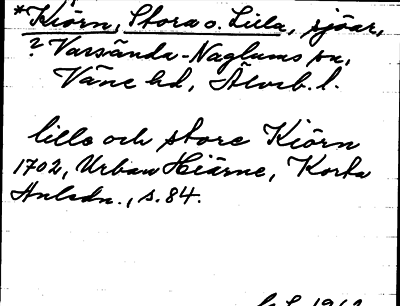 *Kiörn, Stora o. Lilla, sjöar,
? Varsända-Naglums sn,
Väne hd, Älvsb. l.
lille och store Kiörn
1702, Urban Hiärne, Korta
Anledn., s. 84.